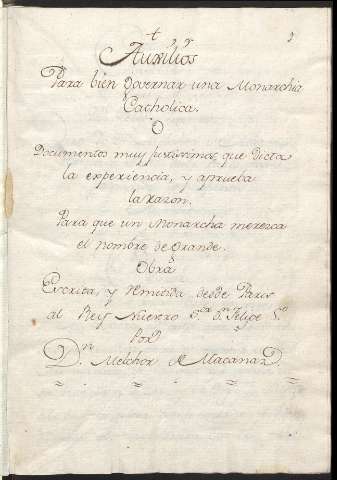 Auxilios
Para bien Governar una Monarchia
Catholica.
O
Documentos muy justissimos, que dicta
la experiencia, y aprueba
la razon.
Para que un Monarcha merezca
el nombre de Grande.
Obra
Escrita, y remitida desde Paris
al Rey Nuestro S.or D.n Felipe 5.o
Por
D.n Melchor de Macanaz.